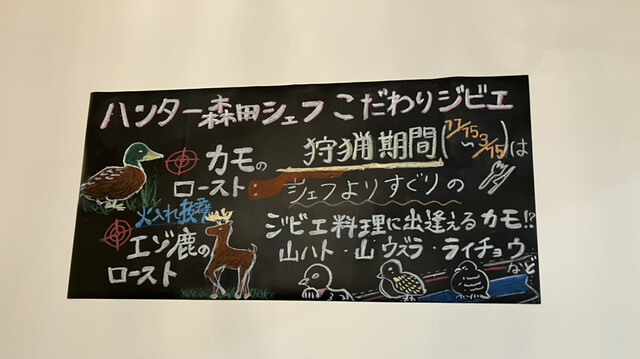 ハンター森田シェフ こだわりジビエ
カモの
ロースト
火入れ抜群
エゾ鹿の
ロースト
狩猟期間(11/15〜3/15)は
シェフよりすぐりの
ジビエ料理に出逢えるカモ!?
山ハト・山ウズラ・ライチョウ
など